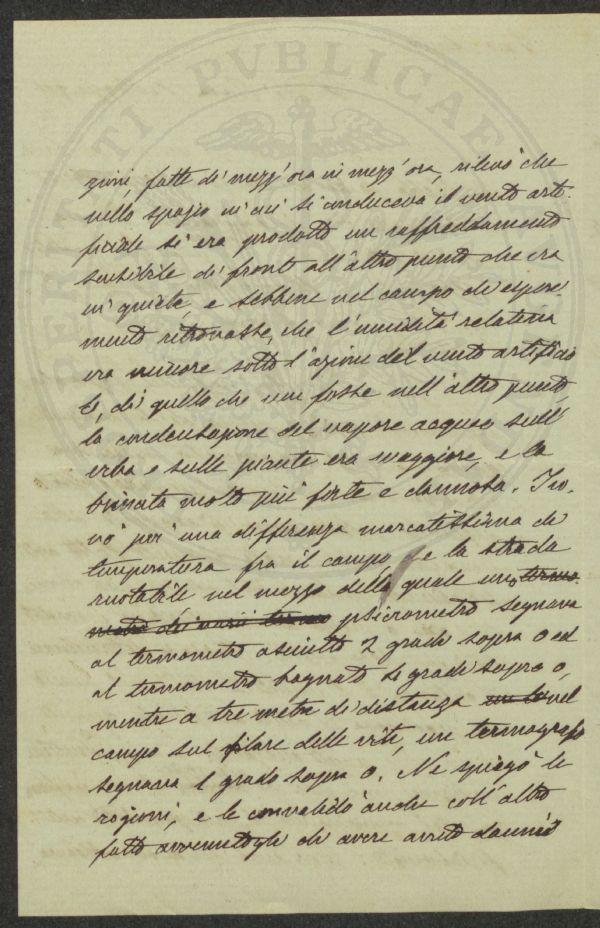 PERUNITI PVBLICAE
zioni, fatte di mezz'ora in mezz'ora, rilevò che
nello spazio in cui si conduceva il vento arti-
ficiale si era prodotto un raffreddamento
sensibile di fronte all'altro punto che era
in quiete, e sebbene nel campo di esperi-
mento ritrovasse, che l'umidità relativa
era minore sotto l'azione del vento artificia
le, di quello che non fosse nell'altro punto,
la condensazione del vapore acqueo sull'
erba e sulle piante era maggiore, e la
brinata molto più forte e dannosa. Tro-
vò per una differenza marcatissima di
temperatura fra il campo, e la strada
ruotabile nel mezzo della quale un termo-
metro psicrometro segnava
al termometro asciutto 2 gradi sopra 0 ed
al termometro bagnato gradi sopra 0,
mentre a tre metri di distanza nel
campo sul filare delle viti, un termografo
segnava 1 grado sopra 0. Ne spiegò le
ragioni, e le convalidò anche coll'altro
fatto avvenutogli di avere avuto danni